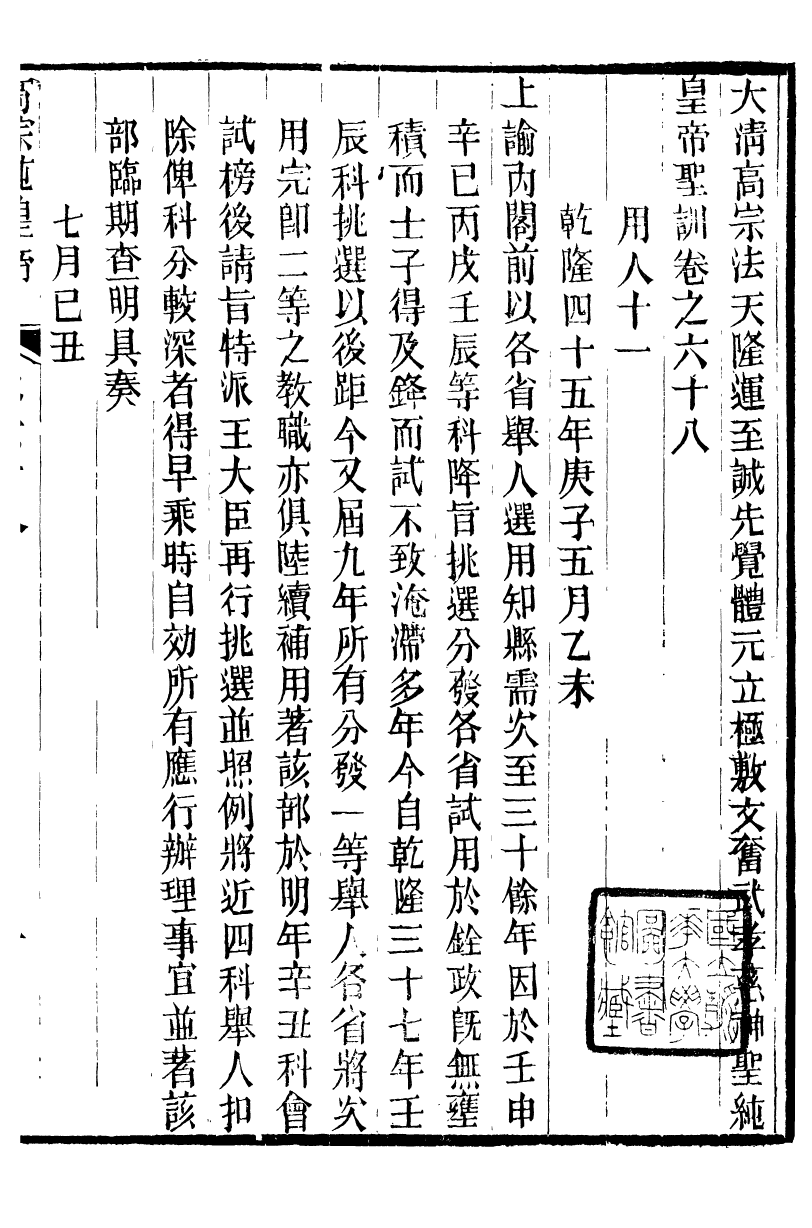 大清高宗法天隆運至誠先覺體元立極敷文奮武孝慈神聖純
皇帝聖訓卷之六十八
用人十一
乾隆四十五年庚子五月乙未
上諭內閣前以各省舉人選用知縣需次至三十餘年因於壬申
辛巳丙戌壬辰等科降旨挑選分發各省試用於銓政旣無壅
積而士子得及鋒而試不致淹滯多年今自乾隆三十七年壬
辰科挑選以後距今又屆九年所有分發一等舉人各省將次
用完卽二等之教職亦俱陸續補用著該部於明年辛丑科會
試榜後請旨特派王大臣再行挑選並照例將近四科舉人扣
除俾科分較深者得早乘時自効所有應行辦理事宜並著該
部臨期查明具奏
七月己丑
高宗純皇帝
國立政
治大學
圖書
館藏